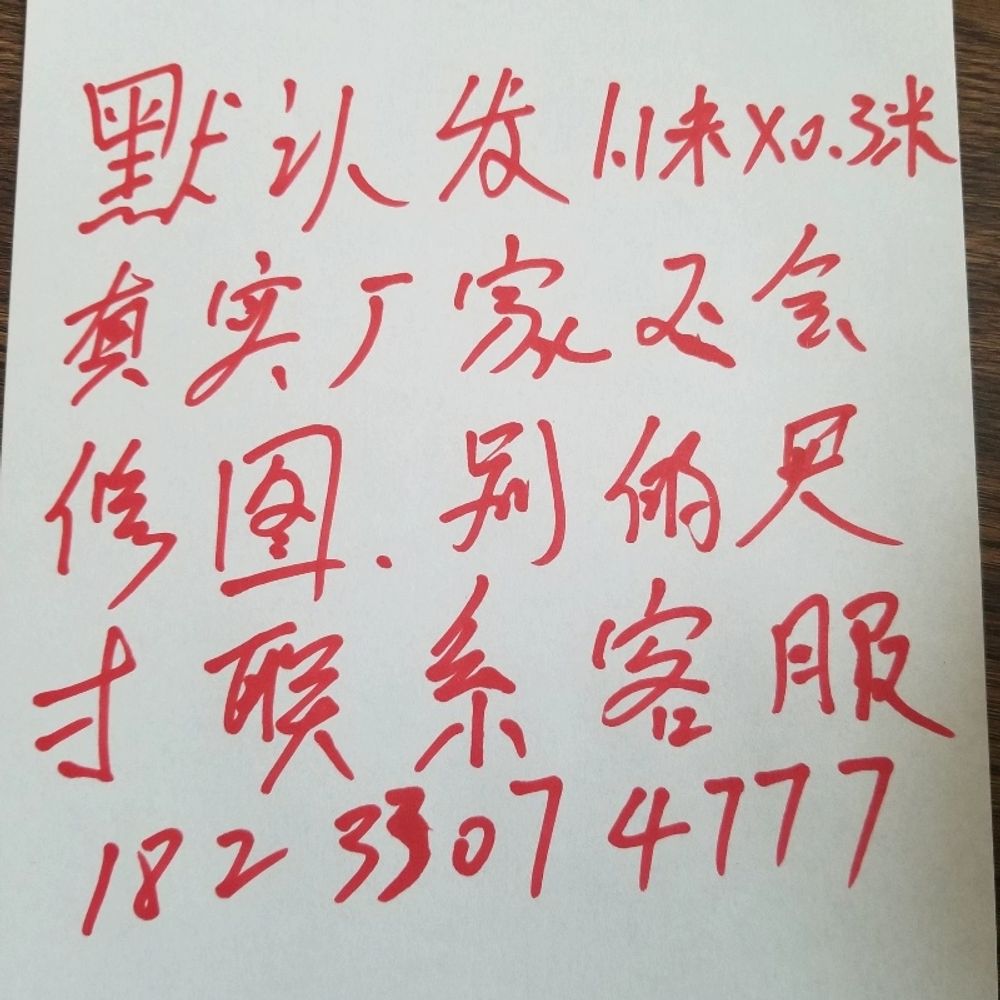 默认发1.1米X0.3米
真实厂家还会
修图.别的尺
寸联系客服
18233074777